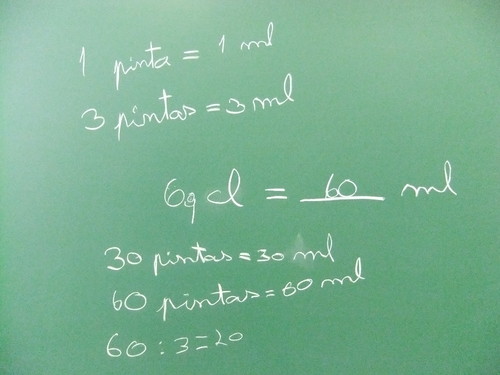 1 pinta = 1 ml
3 pintas = 3 ml
6 cl = 60 ml
30 pintas = 30 ml
60 pintas = 60 ml
60 : 3 = 20